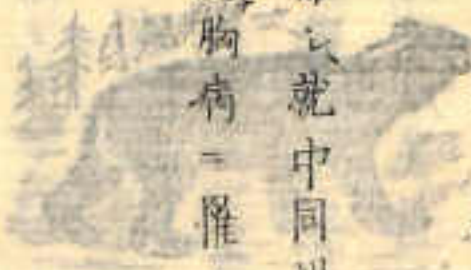 就中同
胸病ニ罹